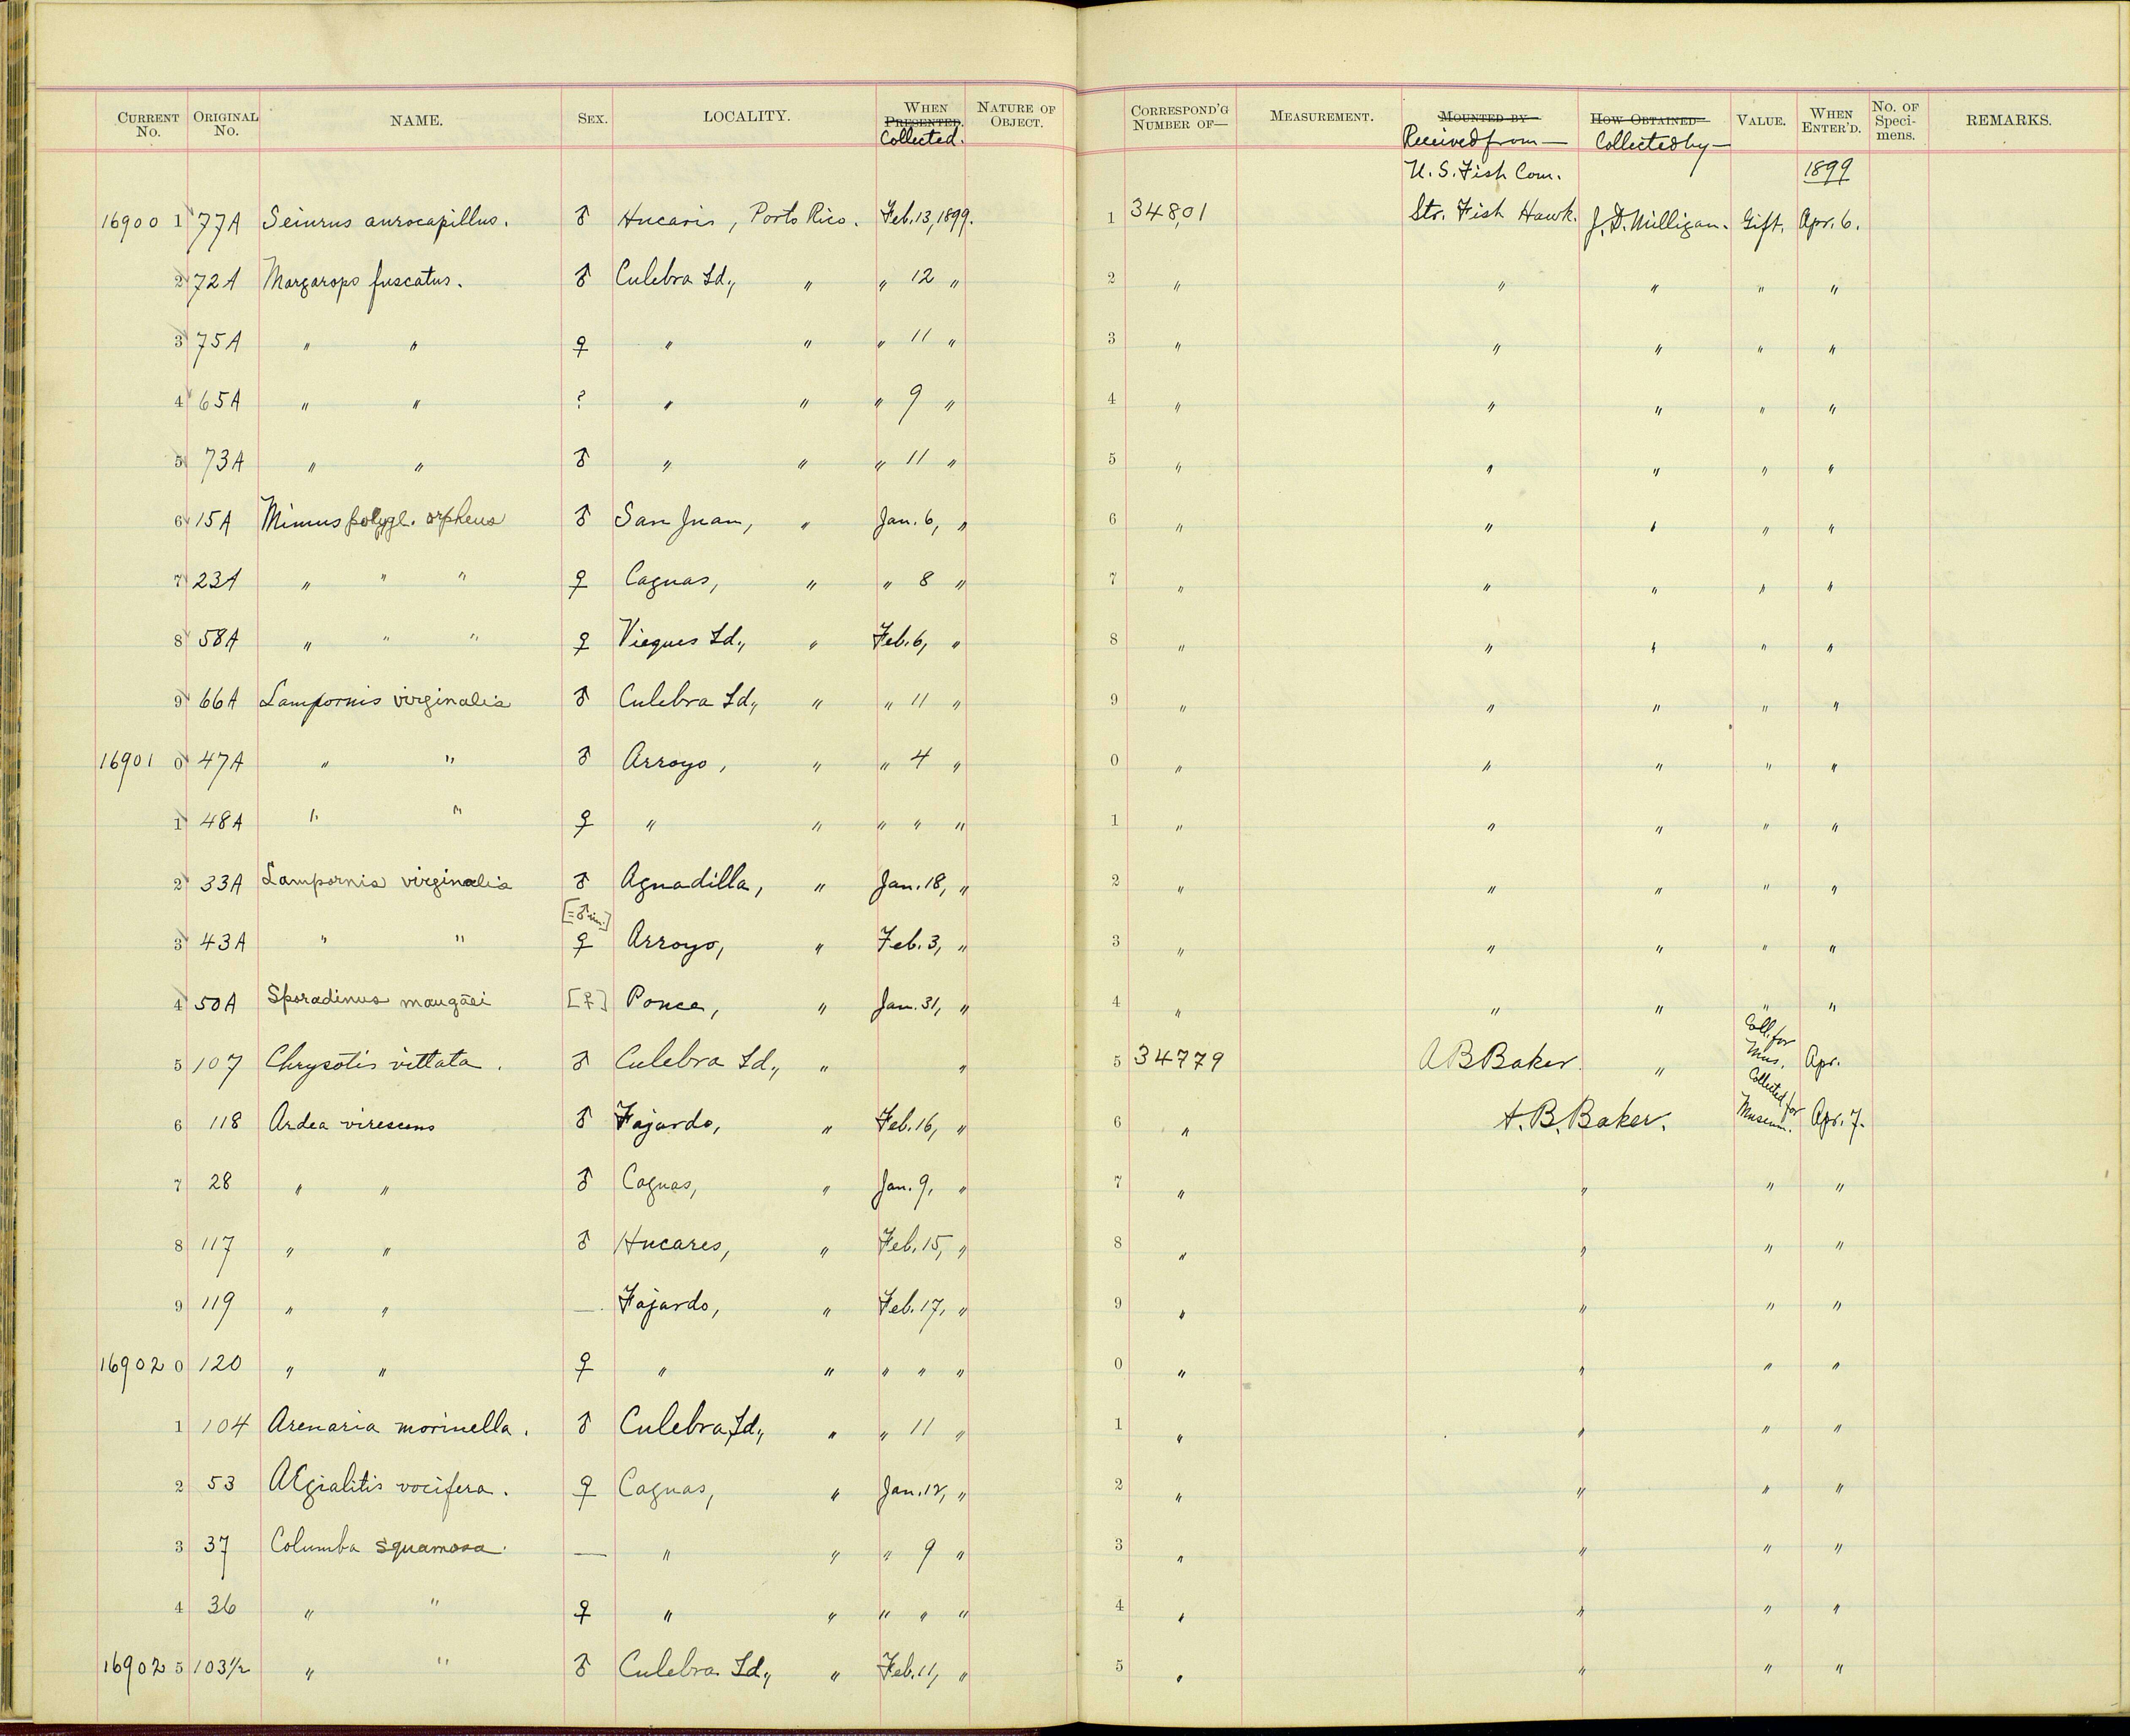 CURRENT No. ORIGINAL No. NAME. SEX. LOCALITY. WHEN PRESENTED. Collected. NATURE OF OBJECT. CORRESPOND'G NUMBER OF— MEASUREMENT. MOUNTED BY Received from— HOW OBTAINED Collected by— VALUE. WHEN ENTER'D. No. OF Speci-mens. REMARKS.
U. S. Fish Com. 1899
16900 1 77A Seiurus aurocapillus. ♂ Hucaris, Porto Rico. Feb. 13, 1899. 1 34,801 Str. Fish Hawk. J. D. Milligan. Gift. Apr. 6.
2 72A Margarops fuscatus. ♂ Culebra Id., " " 12 " 2 " " " " "
3 75A " " ♀ " " " 11 " 3 " " " " "
4 65A " " ? " " " 9 " 4 " " " " "
5 73A " " ♂ " " " 11 " 5 " " " " "
6 15A Mimus polygl. orpheus ♂ San Juan, " Jan. 6, " 6 " " " " "
7 23A " " " ♀ Caguas, " " 8 " 7 " " " " "
8 58A " " " ♀ Vieques Id., " Feb. 6, " 8 " " " " "
9 66A Lampornis virginalis ♂ Culebra Id., " " 11 " 9 " " " " "
16901 0 47A " " ♂ Arroyo, " " 4 " 0 " " " " "
1 48A " " ♀ " " " " " 1 " " " " "
2 33A Lampornis virginalis ♂ Aguadilla, " Jan. 18, " 2 " " " " "
[=♂ im.]
3 43A " " ♀ Arroyo, " Feb. 3, " 3 " " " " "
4 50A Sporadinus maugæi [♀] Ponce, " Jan. 31, " 4 " " " " "
5 107 Chrysotis vittata. ♂ Culebra Id., " " 5 34779 A B Baker " Coll. for Mus. Apr.
6 118 Ardea virescens ♂ Fajardo, " Feb. 16, " 6 " A. B. Baker. Collected for Museum. Apr. 7.
7 28 " " ♂ Caguas, " Jan. 9, " 7 " " " "
8 117 " " ♂ Hucares, " Feb. 15, " 8 " " " "
9 119 " " — Fajardo, " Feb. 17, " 9 " " " "
16902 0 120 " " ♀ " " " " " 0 " " " "
1 104 Arenaria morinella. ♂ Culebra Id., " " 11 " 1 " " " "
2 53 Ægialitis vocifera. ♀ Caguas, " Jan. 12, " 2 " " " "
3 37 Columba squamosa. — " " " 9 " 3 " " " "
4 36 " " ♀ " " " " " 4 " " " "
16902 5 103½ " " ♂ Culebra Id., " Feb. 11, " 5 " " " "